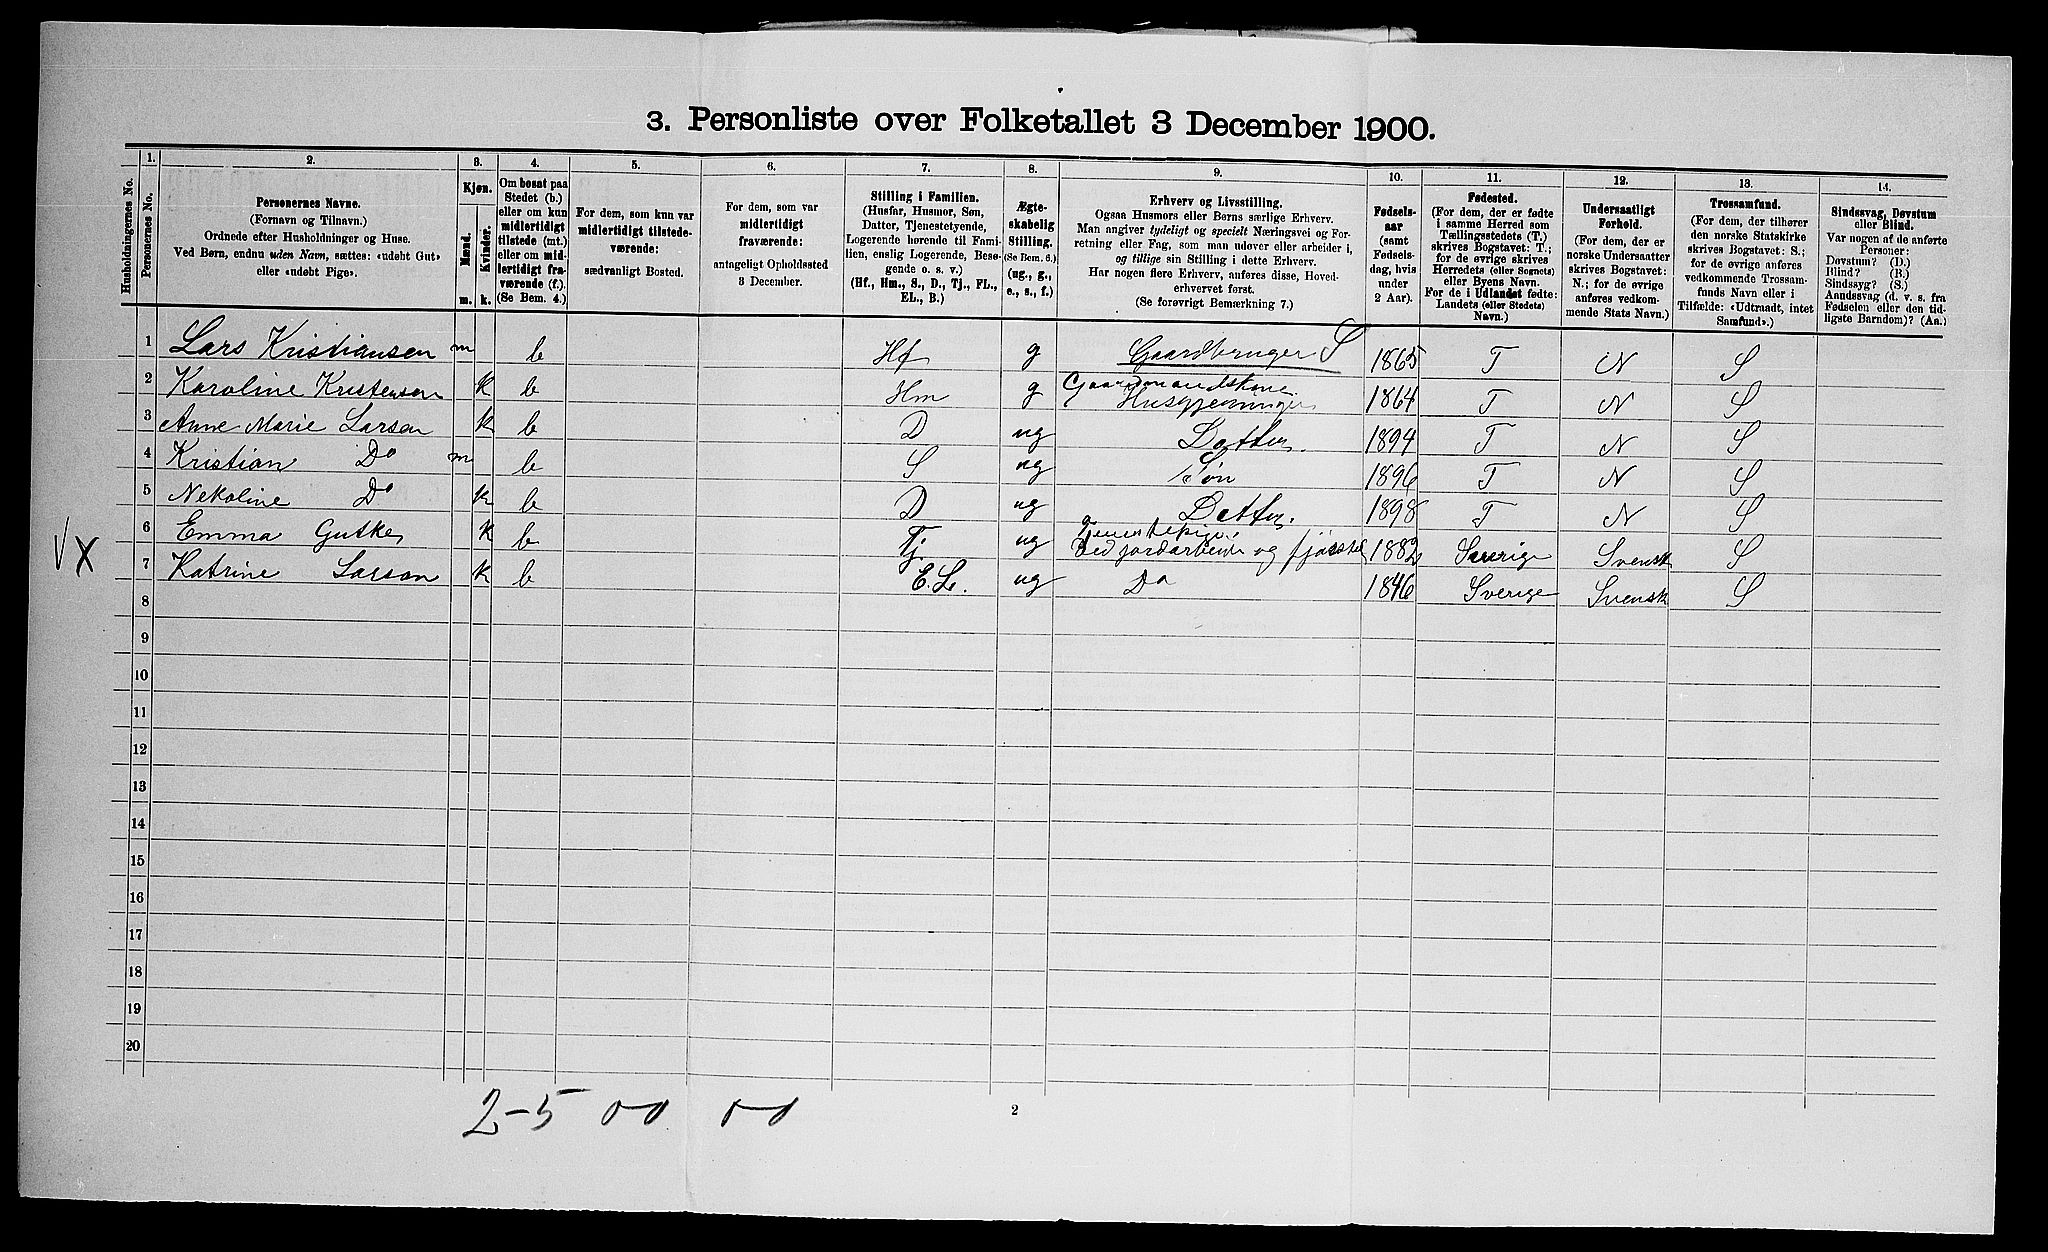 3. Personliste over Folketallet 3 December 1900.
1. 2. 3. 4. 5. 6. 7. 8. 9. 10. 11. 12. 13. 14.
Husholdningernes No.
Personernes No.
Personernes Navne.
(Fornavn og Tilnavn.)
Ordnede efter Husholdninger og Huse.
Ved Børn, endnu uden Navn, sættes: «udøbt Gut»
eller «udøbt Pige».
Kjøn.
Mænd.
Kvinder.
m. k.
Om bosat paa
Stedet (b.)
eller om kun
midlertidigt
tilstede (mt.)
eller om mid-
lertidigt fra-
værende (f.)
(Se Bem. 4.)
For dem, som kun var
midlertidigt tilstede-
værende:
sædvanligt Bosted.
For dem, som var
midlertidigt
fraværende:
antageligt Opholdssted
3 December.
Stilling i Familien.
(Husfar, Husmor, Søn,
Datter, Tjenestetyende,
Logerende hørende til Fami-
lien, enslig Logerende, Besø-
gende o. s. v.)
(Hf., Hm., S., D., Tj., FL.,
EL., B.)
Ægte-
skabelig
Stilling.
(Se Bem. 6.)
(ug., g.,
e., s., f.)
Erhverv og Livsstilling.
Ogsaa Husmors eller Børns særlige Erhverv.
Man angiver tydeligt og specielt Næringsvei og For-
retning eller Fag, som man udøver eller arbeider i,
og tillige sin Stilling i dette Erhverv.
Har nogen flere Erhverv, anføres disse, Hoved-
erhvervet først.
(Se forøvrigt Bemærkning 7.)
Fødsels-
aar
(samt
Fødsels-
dag, hvis
under
2 Aar).
Fødested.
(For dem, der er fødte
i samme Herred som
Tællingsstedets (T.)
skrives Bogstavet: T.;
for de øvrige skrives
Herredets (eller Sognets)
eller Byens Navn.
For de i Udlandet fødte:
Landets (eller Stedets)
Navn.)
Undersaatligt
Forhold.
(For dem, der er
norske Undersaatter
skrives Bogstavet:
N.; for de øvrige
anføres vedkom-
mende Stats Navn.)
Trossamfund.
(For dem, der tilhører
den norske Statskirke
skrives Bogstavet: S.;
for de øvrige anføres
vedkommende Trossam-
funds Navn eller i
Tilfælde: «Udtraadt, intet
Samfund».)
Sindssvag, Døvstum
eller Blind.
Var nogen af de anførte
Personer:
Døvstum? (D.)
Blind? (B.)
Sindssyg? (S.)
Aandssvag (d. v. s. fra
Fødselen eller den tid-
ligste Barndom)? (Aa.)
1 Lars Kristiansen m b Hf g Gaardbruger S 1865 T N S
2 Karoline Kristensen k b Hm g Gaardmandskone Husgjerninger 1864 T N S
3 Anne Marie Larsen k b D ug Datter. 1894 T N S
4 Kristian Do m b S ug Søn 1896 T N S
5 Nekoline Do k b D ug Datter. 1898 T N S
6 Emma Gutke k b Tj ug Tjenestepige ved jordarbeide og fjøsstel 1882 Sverige Svensk S
7 Katrine Larson k b E.L. ug Do 1846 Sverige Svensk S
8
9
10
11
12
13
14
15
16
17
18
19
20
2-5 00 00
2